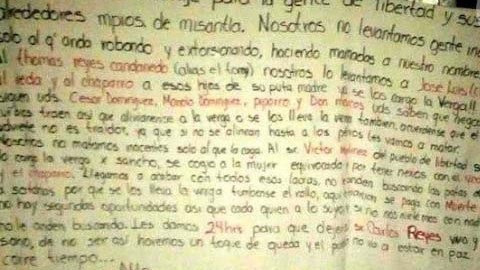 para la gente de libertad y sus
alrededores mpios. de misantla. Nosotros no levantamos gente
solo al q' anda robando y extorsionando, haciendo mamadas a nuestro nombre
al thomas reyes candanedo (alias el tomy) nosotros lo levantamos a Jose Luis
el ieda y al chaparro a esos hijos de su puta madre ya se los cargo la Verga!!
siguen uds. Cesar Dominguez, Moncio Dominguez, piporro y Don marcos uds saben que
traen asi que alinianense a la verga o se los lleva la verga tambien, acuerdense que el
no es traidor, ya que si no se alinean hasta a los perros les vamos a matar.
Nosotros no matamos inocentes solo al que la caga. Al sr. Victor del pueblo de libertad se
lo cargo la verga x sancho, se cogio a la mujer equivocada y por tener nexos con el
y el chaparro. Llegamos a acabar con todas esas lacras, no anden buscando las patas
a satanas por que se los lleva la verga tumbense el rollo, aqui se paga con Muerte
no hay segundas oportunidades asi que cada quien a lo suyo y si no nos
no le anden buscando. Les damos 24hrs para que dejen a Carlos Reyes vivo y
sano, de no ser asi haremos un toque de queda y el no va a estar en paz
corre tiempo...